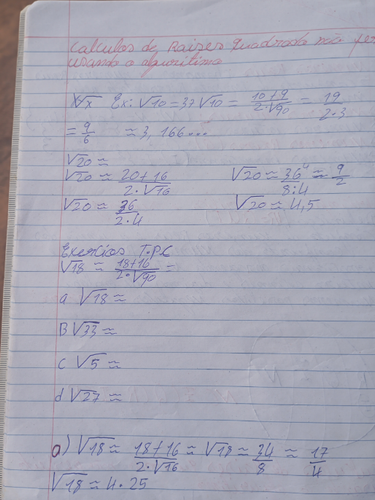 Calculos de Raizes Quadrada não per
usando o algoritimo
x√x Ex: √10=3? √10 = 10+9/2·√90 = 19/2·3
= 9/6 ≈ 3,166...
√20 ≈
√20 ≈ 20+16/2·√16 √20 ≈ 36/8:4 ≈ 9/2
√20 ≈ 36/2·4 √20 ≈ 4,5
Exercicios T.P.C
√18 ≈ 18+16/2·√90 =
a √18 ≈
B √33 ≈
c √5 ≈
d √27 ≈
a) √18 ≈ 18+16/2·√16 ≈ √18 ≈ 34/8 ≈ 17/4
√18 ≈ 4.25